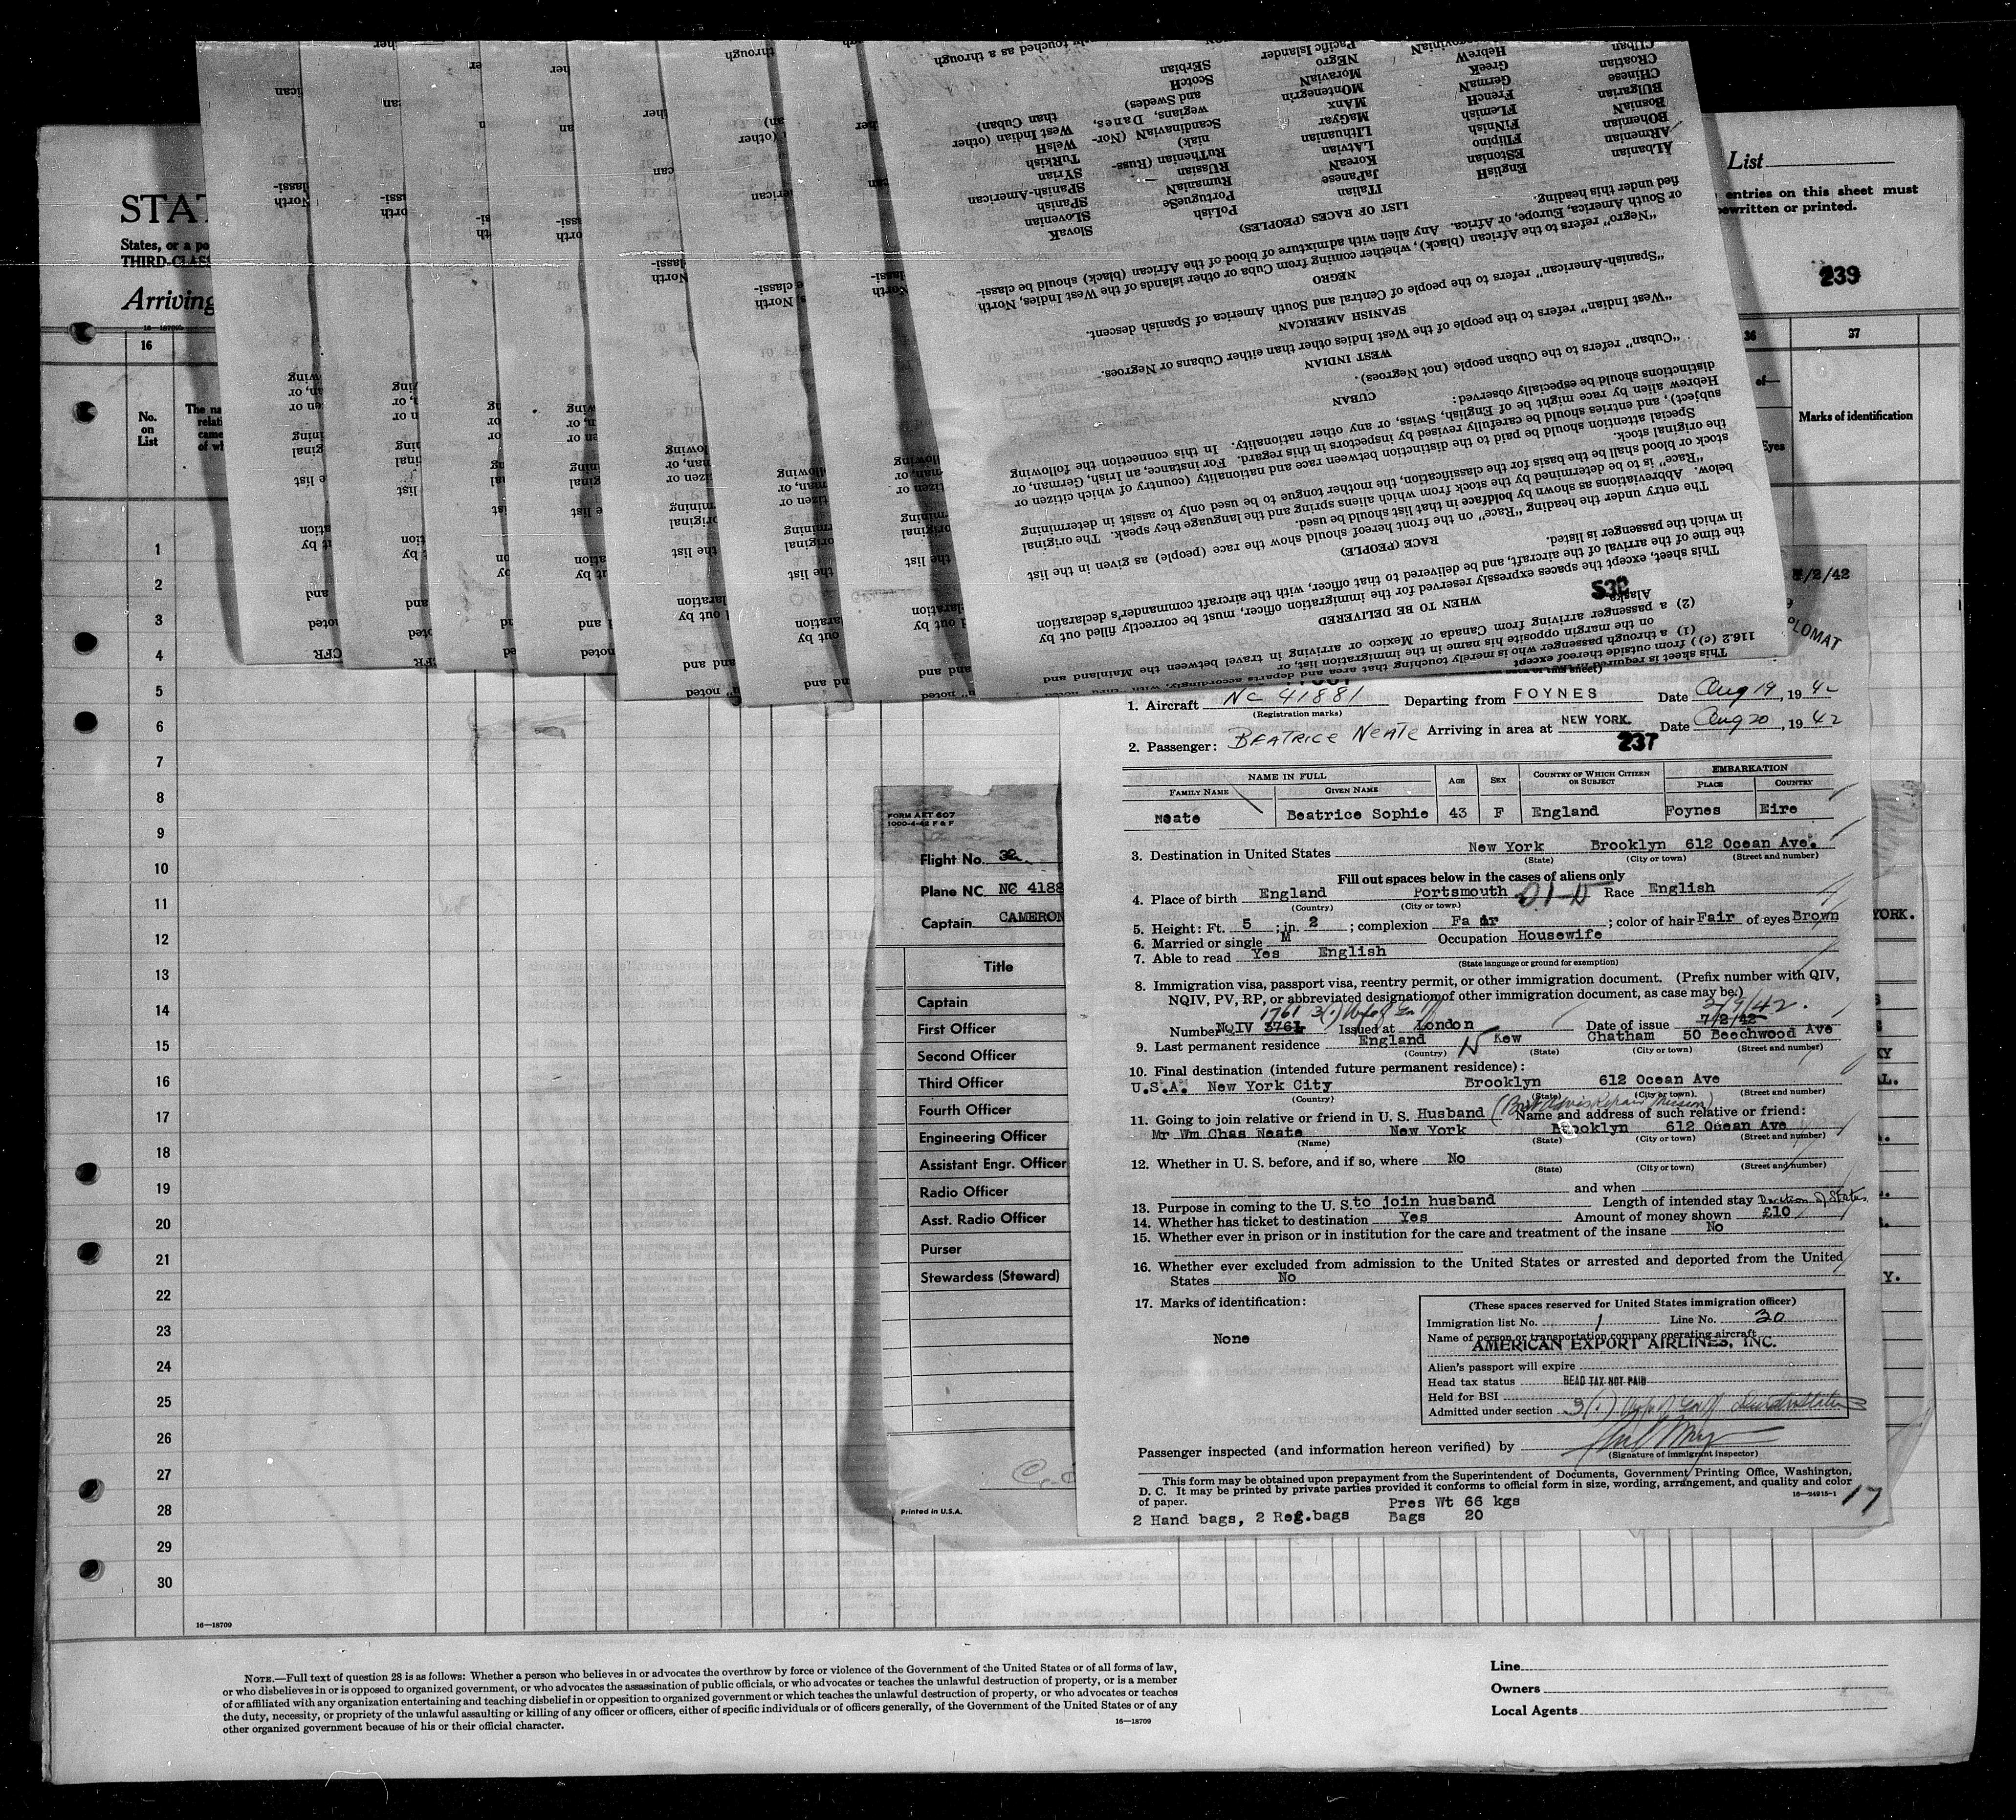 STA
States, or a po
THIRD-CLAS
Arriving
List
entries on this sheet must
ewritten or printed.
239
16
36
37
No.
on
List
The na
relati
came
of wh
of—
Eyes
Marks of identification
1
2
3
4
5
6
7
8
9
10
11
12
13
14
15
16
17
18
19
20
21
22
23
24
25
26
27
28
29
30
16—18709
This sheet is required
116.2 (c)) from outside thereof except
(1) a through passenger who is merely touching that area and departs accordingly, with
on the margin opposite his name in the immigration list, or
(2) a passenger arriving from Canada or Mexico or arriving in travel between the Mainland and
Alaska.
WHEN TO BE DELIVERED
This sheet, except the spaces expressly reserved for the immigration officer, must be correctly filled out by
the time of the arrival of the aircraft, and be delivered to that officer, with the aircraft commander's declaration
in which the passenger is listed.
RACE (PEOPLE)
The entry under the heading "Race" on the front hereof should show the race (people) as given in the list
below. Abbreviations as shown by boldface in that list should be used.
"Race" is to be determined by the stock from which aliens spring and the language they speak. The original
stock or blood shall be the basis for the classification, the mother tongue to be used only to assist in determining
the original stock.
Special attention should be paid to the distinction between race and nationality (country of which citizen or
subject), and entries should be carefully revised by inspectors in this regard. For instance, an Irish, German, or
Hebrew alien by race might be of English, Swiss, or any other nationality. In this connection the following
distinctions should be especially observed:
CUBAN
"Cuban" refers to the Cuban people (not Negroes).
WEST INDIAN
"West Indian" refers to the people of the West Indies other than either Cubans or Negroes.
SPANISH AMERICAN
"Spanish-American" refers to the people of Central and South America of Spanish descent.
NEGRO
"Negro" refers to the African (black), whether coming from Cuba or other islands of the West Indies, North
or South America, Europe, or Africa. Any alien with admixture of blood of the African (black) should be classi-
fied under this heading.
LIST OF RACES (PEOPLES)
ALbanian
ARmenian
BOhemian
BOsniaN
BUlgarian
CHinese
CRoatian
CUbaN
EnglisH
EStonian
FIlipino
FiNnish
FLemish
FrencH
GermaN
GreeK
HebreW
ITalian
JaPanese
KoreaN
LAtvian
LIthuanian
MaGyar
MAnx
MOntenegrin
MoraviaN
NEgro
Pacific Islander
PoLish
PortuguеSe
RumaniaN
RUssian
RuThenian (Russ-
niak)
ScandinaviaN (Nor-
wegians, Danes,
and Swedes)
ScotcH
SErbian
SlovaK
SLovenian
SPanish
SPanish-American
SYrian
TuRkish
WelsH
West Indian (other
than Cuban)
/2/42
PLOMAT
1. Aircraft NC 41881 Departing from FOYNES Date Aug 19, 194
(Registration marks)
2. Passenger: BEATRICE NEATE Arriving in area at NEW YORK. Date Aug 20, 1942
237
NAME IN FULL AGE SEX COUNTRY OF WHICH CITIZEN OR SUBJECT EMBARKATION
FAMILY NAME GIVEN NAME PLACE COUNTRY
Neate Beatrice Sophie 43 F England Foynes Eire
3. Destination in United States New York Brooklyn 612 Ocean Ave.
(State) (City or town) (Street and number)
Fill out spaces below in the cases of aliens only
4. Place of birth England Portsmouth Race English
(Country) (City or town)
5. Height: Ft. 5 ; in. 2 ; complexion Fa ir ; color of hair Fair of eyes Brown
6. Married or single M Occupation Housewife
7. Able to read Yes English
(State language or ground for exemption)
8. Immigration visa, passport visa, reentry permit, or other immigration document. (Prefix number with QIV,
NQIV, PV, RP, or abbreviated designation of other immigration document, as case may be.)
1761
Number NQIV 3761 Issued at London Date of issue 7/2/42
9. Last permanent residence England Kew Chatham 50 Beechwood Ave
(Country) (State) (City or town) (Street and number)
10. Final destination (intended future permanent residence):
U.S.A. New York City Brooklyn 612 Ocean Ave
(Country) (State) (City or town) (Street and number)
11. Going to join relative or friend in U. S. Husband Name and address of such relative or friend:
Mr Wm Chas Neate New York Brooklyn 612 Ocean Ave
(Name) (State) (City or town) (Street and number)
12. Whether in U. S. before, and if so, where No
(State) (City or town) (Street and number)
and when
13. Purpose in coming to the U. S. to join husband Length of intended stay Duration of Status
14. Whether has ticket to destination Yes Amount of money shown £10
15. Whether ever in prison or in institution for the care and treatment of the insane No
16. Whether ever excluded from admission to the United States or arrested and deported from the United
States No
17. Marks of identification:
None
(These spaces reserved for United States immigration officer)
Immigration list No. 1 Line No. 30
Name of person or transportation company operating aircraft
AMERICAN EXPORT AIRLINES, INC.
Alien's passport will expire
Head tax status HEAD TAX NOT PAID
Held for BSI
Admitted under section 3(1)
Passenger inspected (and information hereon verified) by
(Signature of immigrant inspector)
This form may be obtained upon prepayment from the Superintendent of Documents, Government Printing Office, Washington,
D. C. It may be printed by private parties provided it conforms to official form in size, wording, arrangement, and quality and color
of paper.
16—24915-1
17
Pres Wt 66 kgs
2 Hand bags, 2 Reg.bags Bags 20
FORM AET 607
1000-4-42 F & F
Flight No. 32
Plane NC NC 4188
Captain CAMERON
Title
Captain
First Officer
Second Officer
Third Officer
Fourth Officer
Engineering Officer
Assistant Engr. Officer
Radio Officer
Asst. Radio Officer
Purser
Stewardess (Steward)
Printed in U.S.A.
YORK.
NOTE.—Full text of question 28 is as follows: Whether a person who believes in or advocates the overthrow by force or violence of the Government of the United States or of all forms of law,
or who disbelieves in or is opposed to organized government, or who advocates the assassination of public officials, or who advocates or teaches the unlawful destruction of property, or is a member
of or affiliated with any organization entertaining and teaching disbelief in or opposition to organized government or which teaches the unlawful destruction of property, or who advocates or teaches
the duty, necessity, or propriety of the unlawful assaulting or killing of any officer or officers, either of specific individuals or of officers generally, of the Government of the United States or of any
other organized government because of his or their official character.
16—18709
Line
Owners
Local Agents